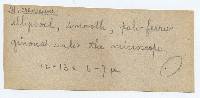 ellipsoid, smooth, pale ferru-
ginous under the microscope
12-13 x 6-7 µ